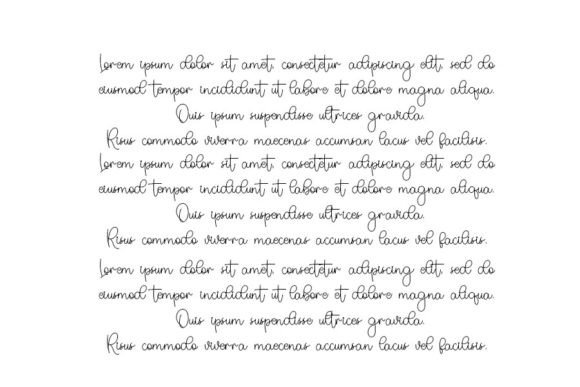 Lorem ipsum dolor sit amet, consectetur adipiscing elit, sed do
eiusmod tempor incididunt ut labore et dolore magna aliqua.
Quis ipsum suspendisse ultrices gravida.
Risus commodo viverra maecenas accumsan lacus vel facilisis.
Lorem ipsum dolor sit amet, consectetur adipiscing elit, sed do
eiusmod tempor incididunt ut labore et dolore magna aliqua.
Quis ipsum suspendisse ultrices gravida.
Risus commodo viverra maecenas accumsan lacus vel facilisis.
Lorem ipsum dolor sit amet, consectetur adipiscing elit, sed do
eiusmod tempor incididunt ut labore et dolore magna aliqua.
Quis ipsum suspendisse ultrices gravida.
Risus commodo viverra maecenas accumsan lacus vel facilisis.